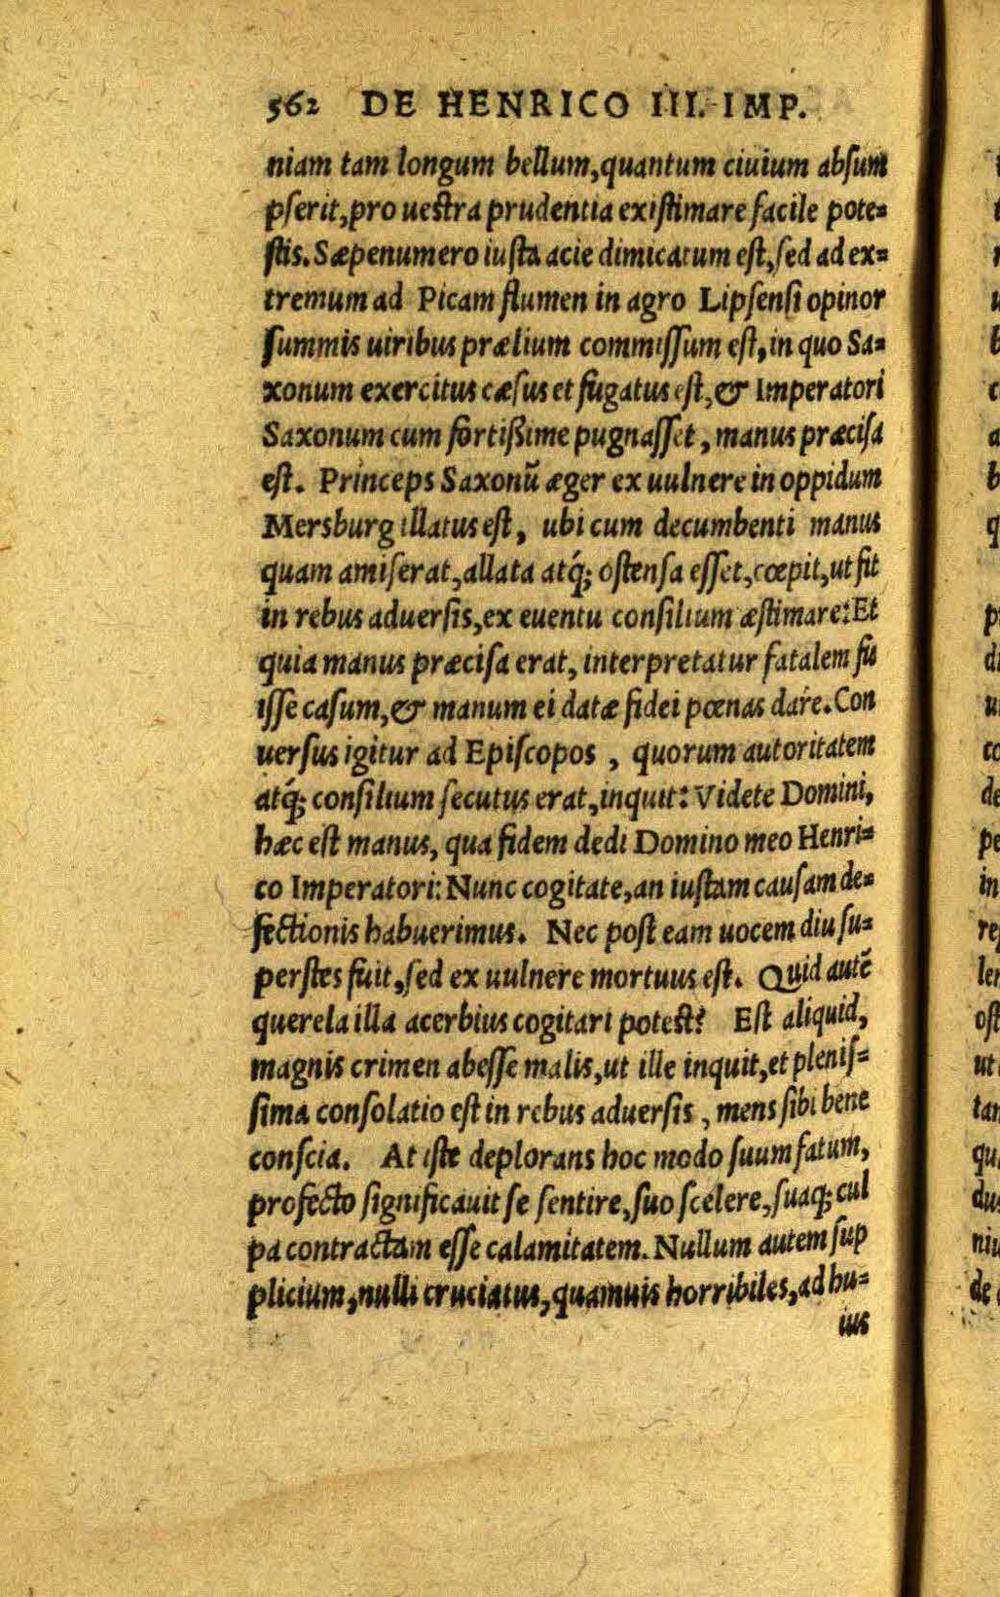 562 DE HENRICO III. IMP.
niam tam longum bellum, quantum ciuium absum
pserit, pro uestra prudentia existimare facile pote=
stis. Sæpenumero iusta acie dimicatum est, sed ad ex=
tremum ad Picam flumen in agro Lipsensi opinor
summis uiribus prælium commissum est, in quo Sa=
xonum exercitus cæsus et fugatus est, & Imperatori
Saxonum cum fortißime pugnasset, manus præcisa
est. Princeps Saxonũ æger ex uulnere in oppidum
Mersburg illatus est, ubi cum decumbenti manus
quam amiserat, allata atq́; ostensa esset, cœpit, ut fit
in rebus aduersis, ex euentu consilium æstimare: Et
quia manus præcisa erat, interpretatur fatalem fu
isse casum, & manum ei datæ fidei pœnas dare. Con
uersus igitur ad Episcopos, quorum autoritatem
atq́; consilium secutus erat, inquit: Videte Domini,
hæc est manus, qua fidem dedi Domino meo Henri=
co Imperatori: Nunc cogitate, an iustam causam de=
fectionis habuerimus. Nec post eam uocem diu su=
perstes fuit, sed ex uulnere mortuus est. Quid autẽ
querela illa acerbius cogitari potest? Est aliquid,
magnis crimen abesse malis, ut ille inquit, et plenis=
sima consolatio est in rebus aduersis, mens sibi bene
conscia. At iste deplorans hoc modo suum fatum,
profecto significauit se sentire, suo scelere, suaq; cul
pa contractam esse calamitatem. Nullum autem sup
plicium, nulli cruciatus, quamuis horribiles, ad hu=
ius